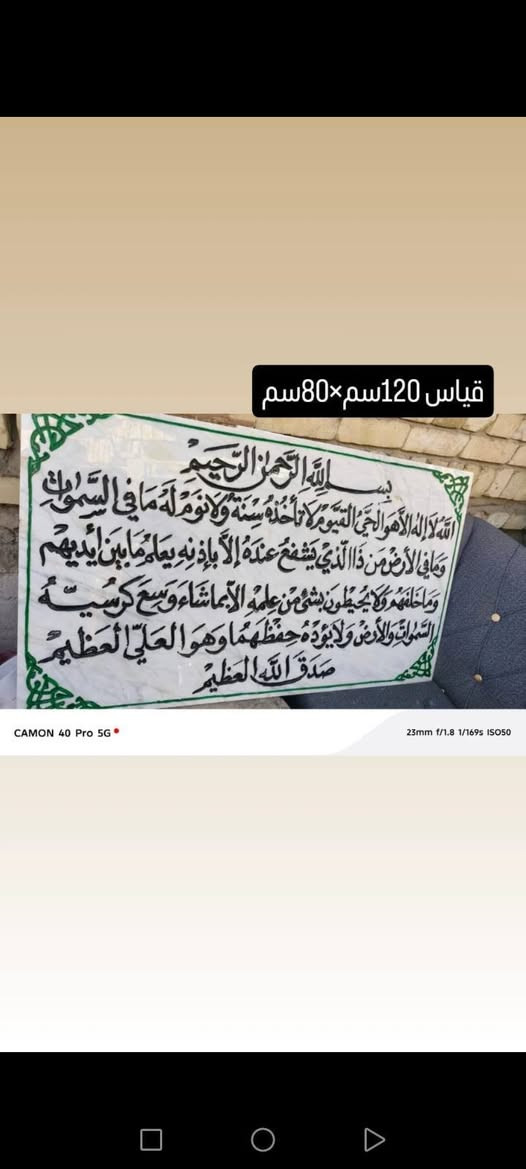 قياس 120سم×80سم
بسم الله الرحمن الرحيم
الله لا إله إلا هو الحي القيوم لا تأخذه سنة ولا نوم له ما في السموات
وما في الأرض من ذا الذي يشفع عنده إلا بإذنه يعلم ما بين أيديهم
وما خلفهم ولا يحيطون بشئ من علمه إلا بما شاء وسع كرسيه
السموات والأرض ولا يؤده حفظهما وهو العلي العظيم
صدق الله العظيم
CAMON 40 Pro 5G
23mm f/1.8 1/169s ISO50